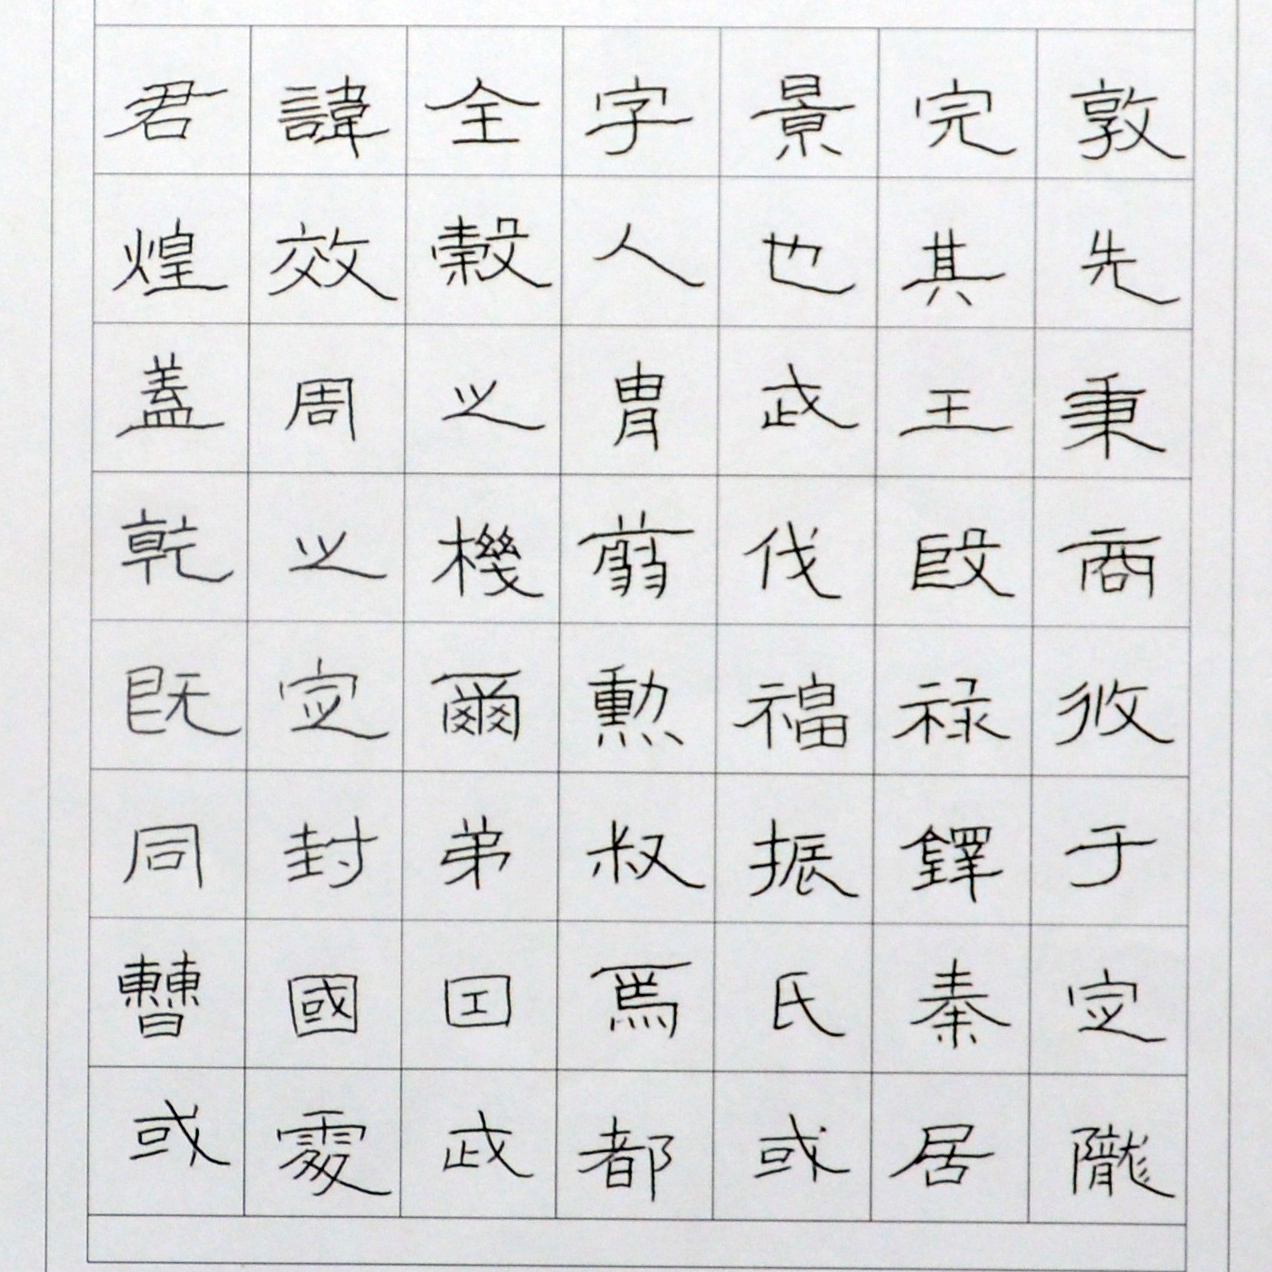 君諱全字景完敦
煌效穀人也其先
蓋周之胄武王秉
乾之機翦伐殷商
既定爾勳福祿攸
同封弟叔振鐸于
曹國因焉氏秦定
或處武都或居隴